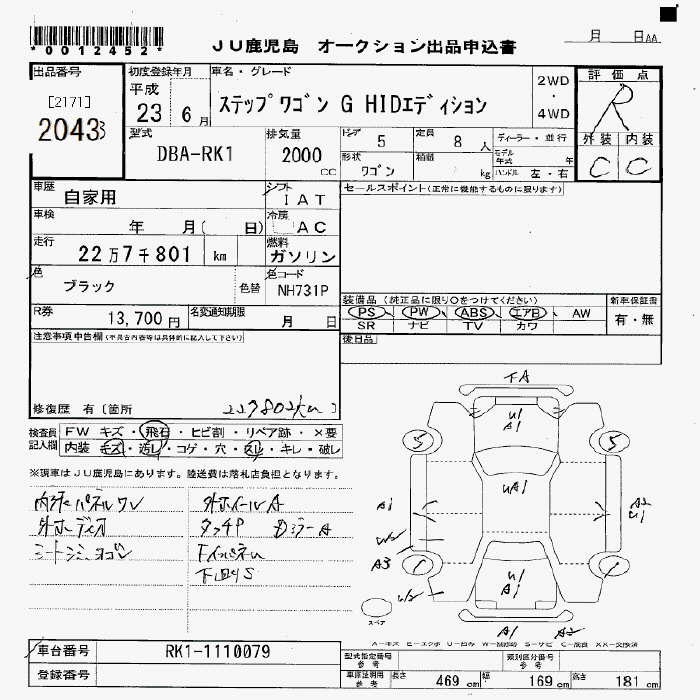 *0012452*
JU鹿児島 オークション出品申込書 月 日AA
出品番号 初度登録年月 車名・グレード 評価点
[2171] 平成 ステップワゴン G HIDエディション 2WD ・ 4WD R
2043 23 6月
型式 排気量 ドア 5 定員 8人 ディーラー・並行 外装 内装
DBA-RK1 2000cc 形状 ワゴン 積載 kg モデル年式 年 C C
ハンドル 左・右
車歴 自家用 シフト IAT セールスポイント(正常に機能するものに限ります)
車検 年 月( 日) 冷房 AC
走行 22万7千801 km 燃料 ガソリン
色 ブラック 色替 色コード NH731P
装備品(純正品に限り○をつけてください) 新車保証書
R券 13,700円 名変通知期限 月 日 PS PW ABS エアB AW 有・無
SR ナビ TV カワ
注意事項申告欄(不具合内容等は具体的に記入して下さい) 後日品
修復歴 有〔箇所 227802km〕
検査員記入欄 FW キズ・飛石・ヒビ割・リペア跡・×要
内装 キズ・汚レ・コゲ・穴・スレ・キレ・破レ
※現車はJU鹿児島にあります。陸送費は落札店負担となります。
外ホイールA
シートシミヨゴレ
下回りS
FA
U1
A1
S S
UA1
A1 A2
U1
W2
A3 C C
U1
A1
W2
スペア
A1 A2
A-キズ E-エクボ U-凹み W-補修跡 S-サビ C-腐食 XX-交換済
車台番号 RK1-1110079 型式指定番号 参考 類別区分番号 参考
登録番号 車庫証明用 参考 長さ 469cm 幅 169cm 高さ 181cm